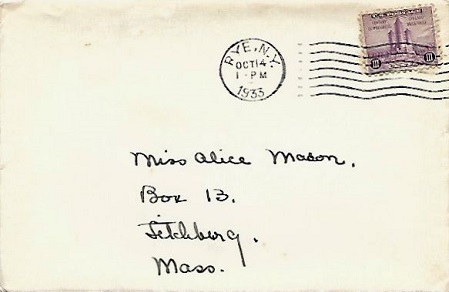 RYE, N.Y.
OCT 14
1-PM
1933
Miss Alice Mason.
Box 13.
Fitchburg.
Mass.